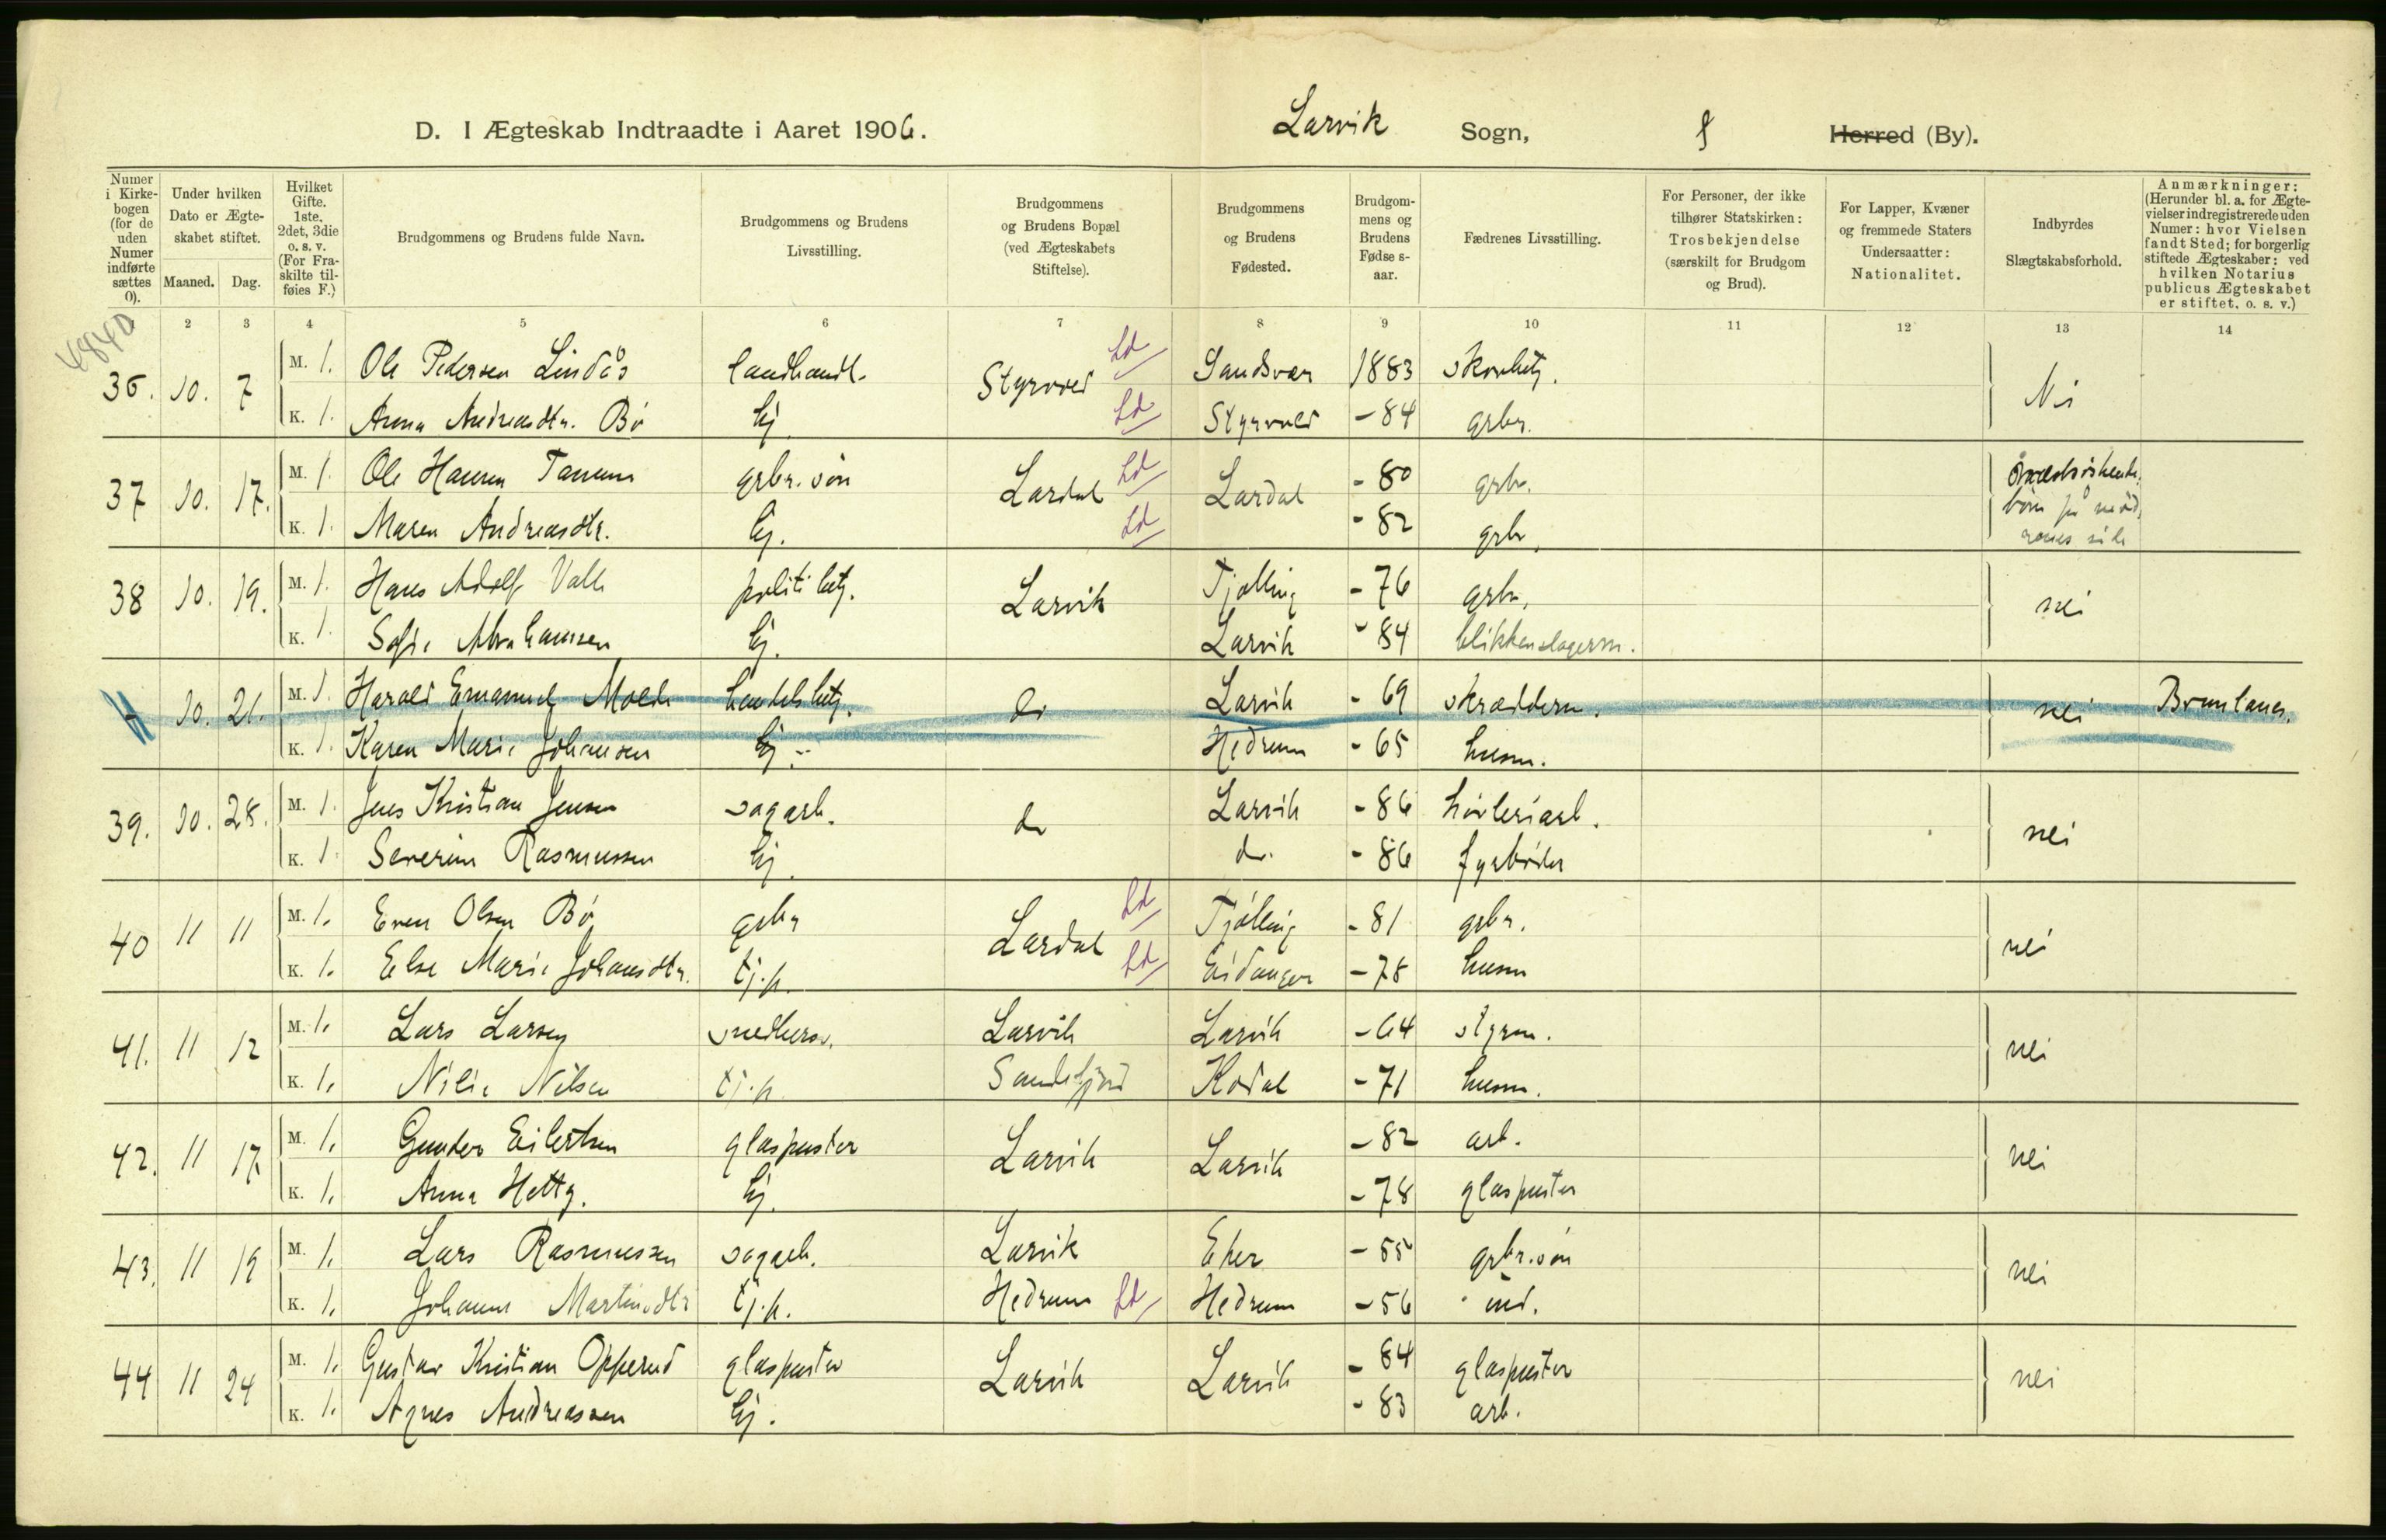 D. I Ægteskab Indtraadte i Aaret 1906. Larvik Sogn, Herred (By).
Numer i Kirkebogen (for de uden Numer indførte sættes 0).
Under hvilken Dato er Ægteskabet stiftet.
Maaned. Dag.
Hvilket Gifte. 1ste, 2det, 3die o. s. v. (For Fraskilte tilføies F.)
Brudgommens og Brudens fulde Navn.
Brudgommens og Brudens Livsstilling.
Brudgommens og Brudens Bopæl (ved Ægteskabets Stiftelse).
Brudgommens og Brudens Fødested.
Brudgommens og Brudens Fødselsaar.
Fædrenes Livsstilling.
For Personer, der ikke tilhører Statskirken: Trosbekjendelse (særskilt for Brudgom og Brud).
For Lapper, Kvæner og fremmede Staters Undersaatter: Nationalitet.
Indbyrdes Slægtskabsforhold.
Anmærkninger: (Herunder bl. a. for Ægtevielser indregistrerede uden Numer: hvor Vielsen fandt Sted; for borgerlig stiftede Ægteskaber: ved hvilken Notarius publicus Ægteskabet er stiftet, o. s. v.)
2 3 4 5 6 7 8 9 10 11 12 13 14
4840
36. 10. 7 M. 1. Ole Pedersen Lindås landhandl. Styrvold Ld Sandsvær 1883 skovbetj. Nei
K. 1. Anna Andreasdtr. Bø Ld Styrvold -84 grbr.
37 10. 17. M. 1. Ole Hansen Tanum grbr. søn Lardal Ld Lardal -80 grbr.
K. 1. Maren Andreasdtr. Ld -82 grbr.
38 10. 19. M. 1. Hans Adolf Valle politibetj. Larvik Tjølling -76 grbr. nei
K. 1. Sofie Abrahamsen Larvik -84 blikkenslagerm.
10. 21. M. 1. Harald Emanuel Molde handelsbetj. do Larvik -69 skrædderm. nei Brunlanes.
K. 1. Karen Marie Johansen Hedrum -65 husm.
39. 10. 28. M. 1. Jens Kristian Jensen sagarb. do Larvik -86 høvleriarb. nei
K. 1. Severine Rasmussen do. -86 fyrbøder
40 11 11 M. 1. Even Olsen Bø grbr Lardal Ld Tjølling -81 grbr. nei
K. 1. Else Marie Johansdtr. tj.p. Ld Eidanger -78 husm
41. 11 12 M. 1. Lars Larsen snedkersv. Larvik Larvik -64 styrm. nei
K. 1. Nilie Nilsen tj.p. Sandefjord Kodal -71 husm.
42. 11 17 M. 1. Gunder Eilertsen glaspuster Larvik Larvik -82 arb. nei
K. 1. Anna -78 glaspuster
43. 11 19 M. 1. Lars Rasmussen sagarb. Larvik Eker -55 grbr.søn nei
K. 1. Johanne Martinsdtr tj.p. Hedrum Ld Hedrum -56 ind.
44 11 24 M. 1. Gustav Kristian Opperud glaspuster Larvik Larvik -84 glaspuster nei
K. 1. Agnes Andreassen -83 arb.